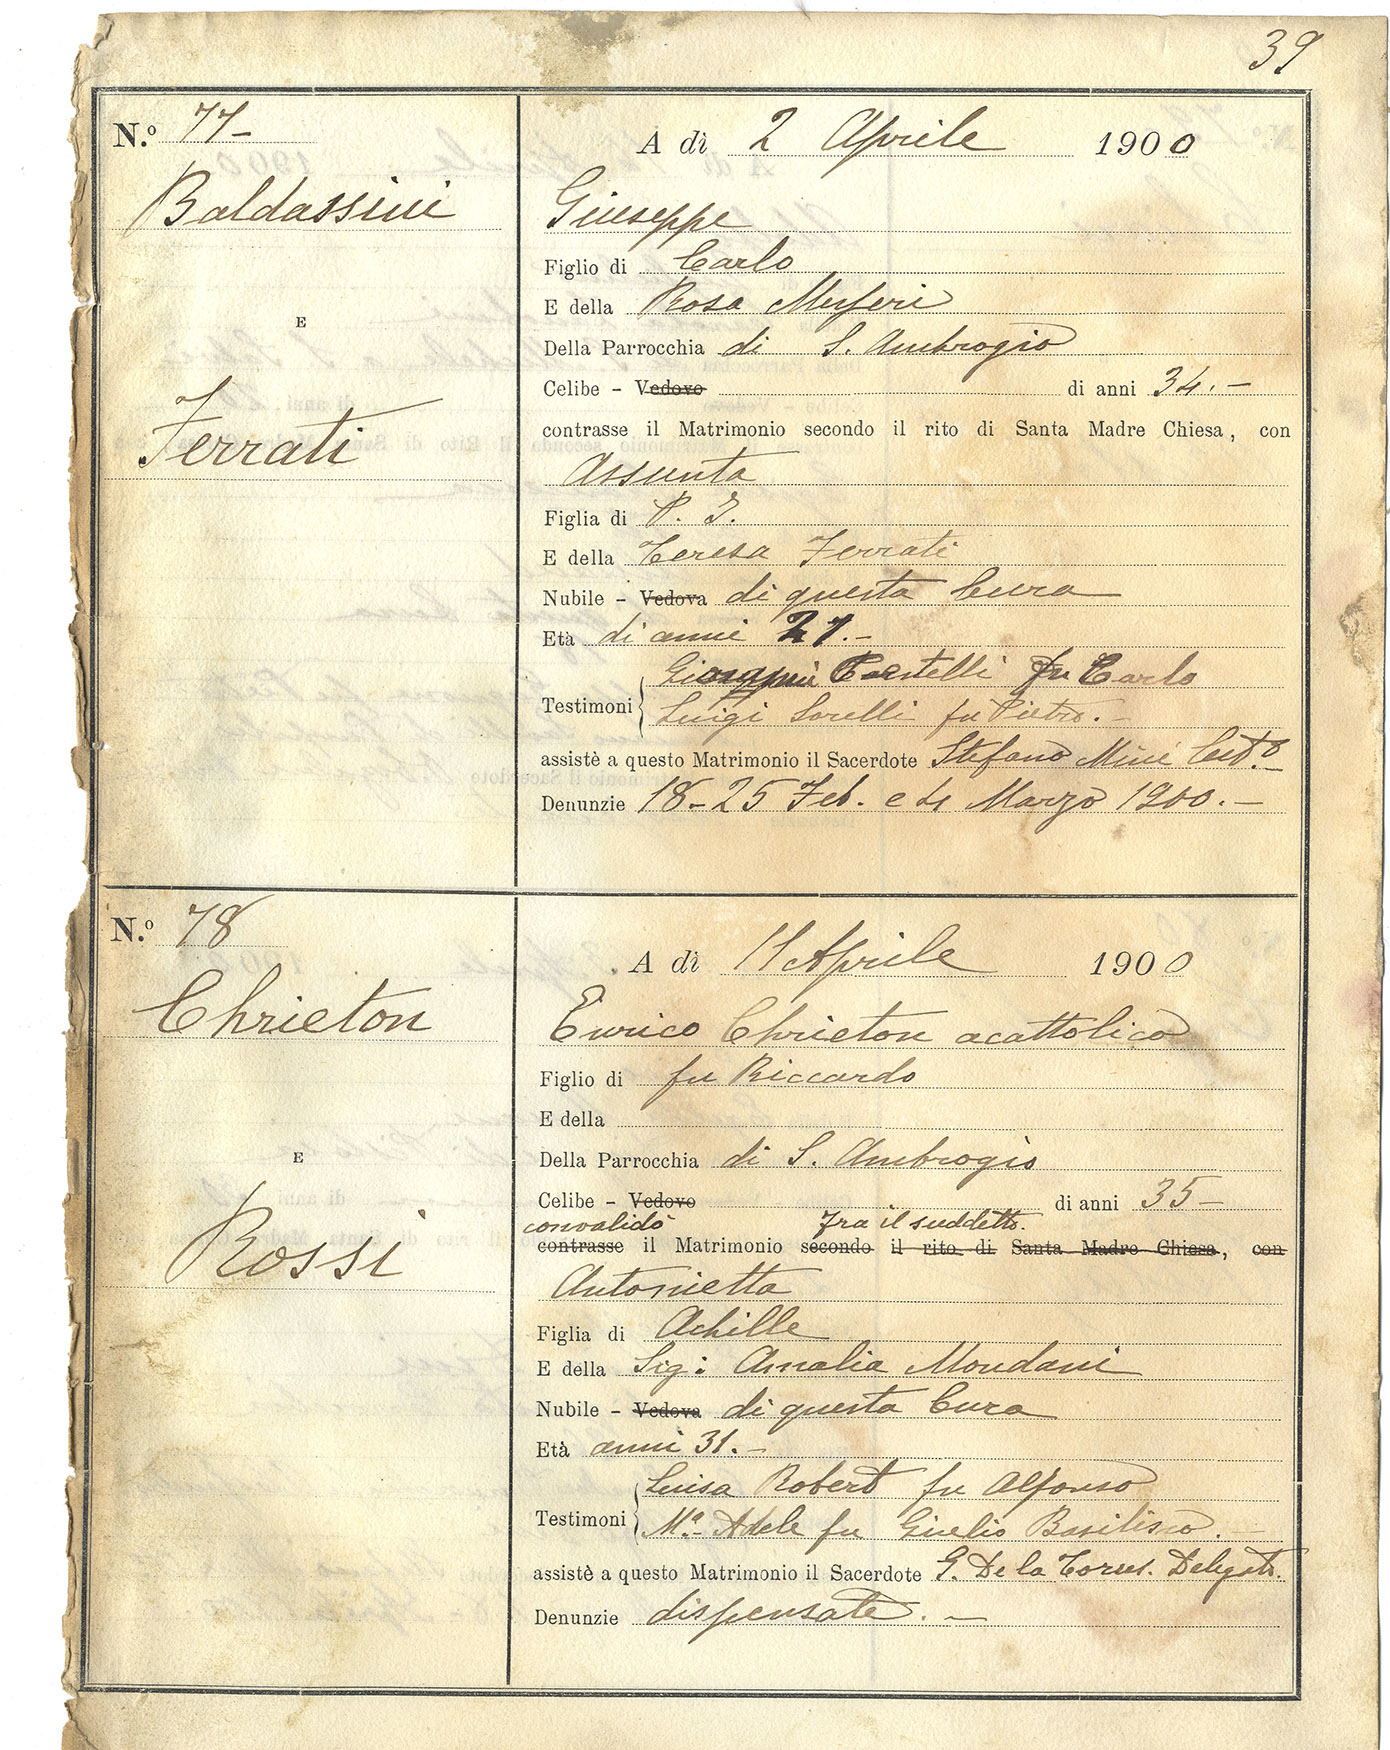 39
N.º 77-
A dì 2 Aprile 1900
Baldassini
Giuseppe
Figlio di Carlo
E della Rosa
E
Della Parrocchia di S. Ambrogio
Celibe - Vedovo di anni 34.-
Ferrati
contrasse il Matrimonio secondo il rito di Santa Madre Chiesa, con
Assunta
Figlia di P. I.
E della Teresa Ferrati
Nubile - Vedova di questa Cura
Età di anni 27.-
fu Carlo
Testimoni Luigi Sorelli fu Pietro.-
assistè a questo Matrimonio il Sacerdote Stefano Mini
Denunzie 18-25 Feb. e 4 Marzo 1900.-
N.º 78
A dì 11 Aprile 1900
Chrieton
Enrico Chrieton acattolico
Figlio di fu Riccardo
E della
E
Della Parrocchia di S. Ambrogio
Celibe - Vedovo di anni 35-
convalidò fra il suddetto.
Rossi
contrasse il Matrimonio secondo il rito di Santa Madre Chiesa, con
Antonietta
Figlia di Achille
E della Sig: Amalia Mondani
Nubile - Vedova di questa Cura
Età anni 31.-
Luisa Robert fu Alfonso
Testimoni Mª Adele fu Giulio Basilisco.
assistè a questo Matrimonio il Sacerdote G. De la
Denunzie dispensate.-